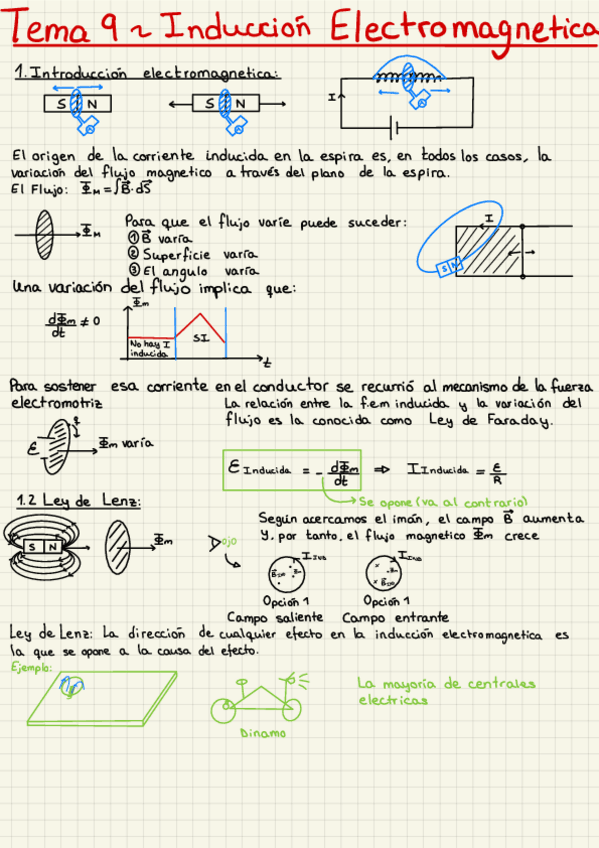 Tema 9 ~ Inducción Electromagnetica
1. Introducción electromagnetica:
S N
S N
I
El origen de la corriente inducida en la espira es, en todos los casos, la
variación del flujo magnetico a través del plano de la espira.
El Flujo: Φ_M = ∫B⃗·dS⃗
Φ_M
Para que el flujo varíe puede suceder:
① B⃗ varía
② Superficie varía
③ El angulo varía
I
S N
Una variación del flujo implica que:
dΦm/dt ≠ 0
Φm
No hay I
inducida
SI
t
Para sostener esa corriente en el conductor se recurrió al mecanismo de la fuerza
electromotriz
La relación entre la f.e.m inducida y la variación del
flujo es la conocida como Ley de Faraday.
ε
Φm varía
ε Inducida = - dΦm/dt ⇒ I Inducida = ε/R
Se opone (va al contrario)
1.2 Ley de Lenz:
S N
Φm
Según acercamos el imán, el campo B⃗ aumenta
y, por tanto, el flujo magnetico Φm crece
ojo
Opción 1
Campo saliente
Opción 1
Campo entrante
Ley de Lenz: La dirección de cualquier efecto en la inducción electromagnetica es
la que se opone a la causa del efecto.
Ejemplo:
Dinamo
La mayoría de centrales
electricas